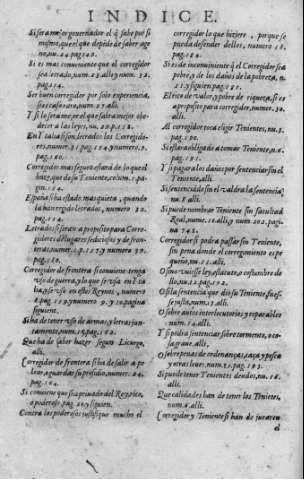 INDICE.
Si sera mejor governador el q̃ sabe por si
mismo, que el que depẽde de saber age
no, nu. 24. pag. 148.
Si es mas conveniente que el corregidor
sea letrado, num. 23. alli y num. 32.
pag. 154.
Ser buen corregidor por sola experiencia,
si es caso raro, num. 27. alli.
Y si lo sera mejor el que sabra mejor obe-
decer a las leyes, nu. 29. p. 158.
En Italia si son letrados los Corregido-
res, numer. 31. pag. 154. y numer. 9.
pag. 160.
Corregidor mas seguro estará de lo que el
haze, que de su Teniente, colum. 1. pa-
gin. 154.
España si ha estado mas quieta, quando
ha havido letrados, numero 32.
pag. 154.
Letrados si seran a proposito para Corre-
gidores de lugares sediciosos y de fron-
teras, numer. 1. p. 157. y numer. 39.
pag.
Corregidor de frontera si conviene tenga
uso de guerra, y lo que se usa en Ita
lia, y se usa en estos Reynos, numer.
8. pag. 159. y numero 9. y 10. pagina
siguient.
Si ha de tener uso de armas y letras jun-
tamente, num. 19. pag. 162.
Que ha de saber hazer segun Licurgo,
alli.
Corregidor de frontera si ha de salir a pe
lear, o guardar su presidio, numer. 24.
pag. 164.
Si conviene que sea privado del Rey, rico,
o poderoso, pag. 20. y siguien.
Contra los poderosos justifique mucho el
corregidor lo que hiziere, porque se
pueda defender dellos, numero 18.
pag.
Si es de inconveniente q̃ el Corregidor sea
pobre, y de los daños de la pobreza, n.
21. y siguien. pag. 182.
El rico de valor, y pobre de riqueza, si es
a proposito para corregidor, numer. 30.
alli.
Al corregidor toca eligir Tenientes, nu. 3.
pag. 190.
Si estara obligado a tomar Teniente, nu. 6.
pag. 191.
Y si pagara los daños por sentenciar sin el
Teniente, alli.
Si sentenciado sin el valdra la sentencia,
nu. 8. alli.
Si puede nombrar Teniente sin facultad
Real, nume. 10. alli, y num. 202. pagi-
na 742.
Corregidor si podra passar sin Teniente,
son pena donde el corregimiento es pe
queño, nu. 11. alli.
O si no uviesse ley, estatuto, o costumbre de
llo, nu. 12. pag. 193.
O si la sentencia que dio su Teniente fuesse
injusta, num. 13. alli.
O sobre autos interlocutorios y reparables
num. 14. alli.
Y si podra sentenciar sobre tormento, o co-
sa grave. alli.
O sobre penas de ordenanças, caça, y pesca
y otras leves, num. 21. pag. 195.
Si puede tener Tenientes deudos, nu. 16.
alli.
Que calidades han de tener los Tenientes,
num. 6. alli.
Corregidor y Teniente si han de jurar en
el